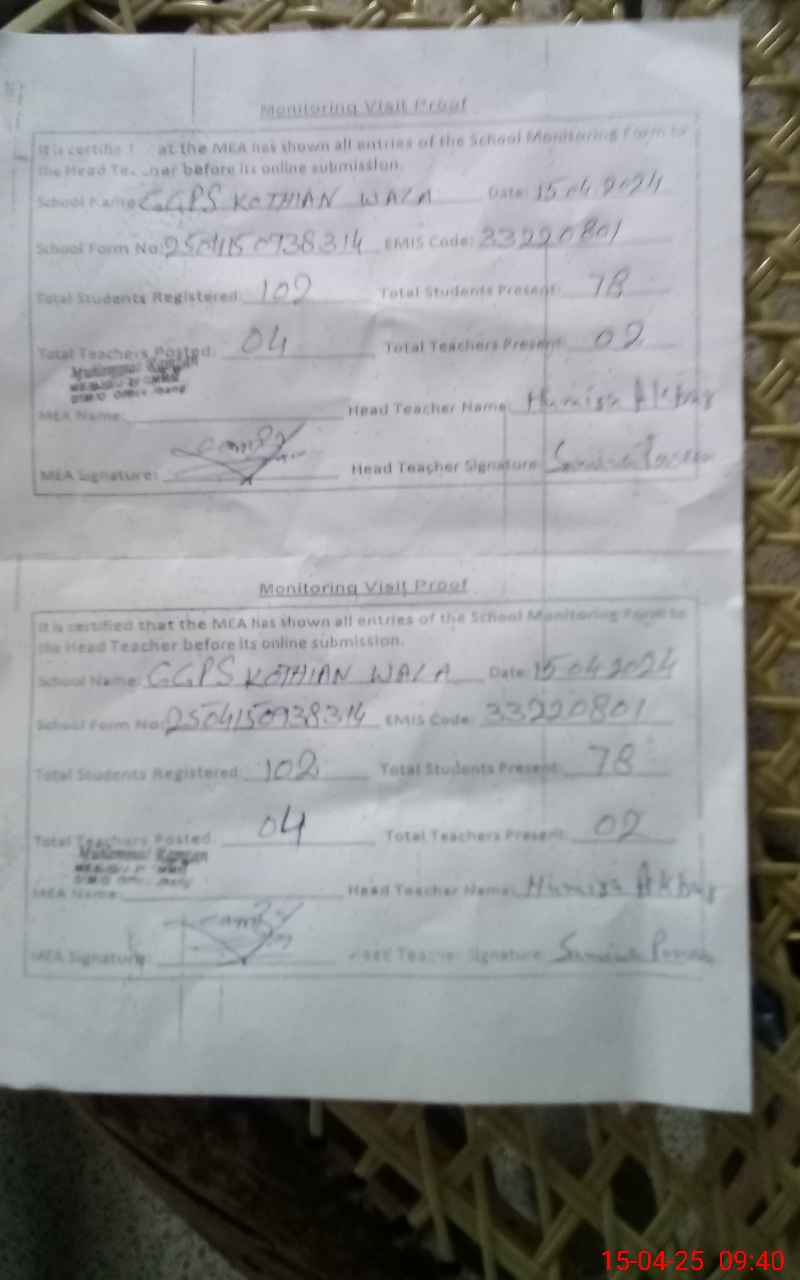 Monitoring Visit Proof
It is certified that the MEA has shown all entries of the School Monitoring Form to
the Head Teacher before its online submission.
School Name: GGPS KOTHIAN WALA Date: 15.04.2024
School Form No: 2504150938314 EMIS Code: 33220801
Total Students Registered: 102 Total Students Present: 78
Total Teachers Posted: 04 Total Teachers Present: 02
MEA Name: Head Teacher Name: Humira Akbar
MEA Signature: Head Teacher Signature:
Monitoring Visit Proof
It is certified that the MEA has shown all entries of the School Monitoring Form to
the Head Teacher before its online submission.
School Name: GGPS KOTHIAN WALA Date: 15.04.2024
School Form No: 2504150938314 EMIS Code: 33220801
Total Students Registered: 102 Total Students Present: 78
Total Teachers Posted: 04 Total Teachers Present: 02
MEA Name: Head Teacher Name: Humira Akbar
MEA Signature: Head Teacher Signature:
15-04-25 09:40